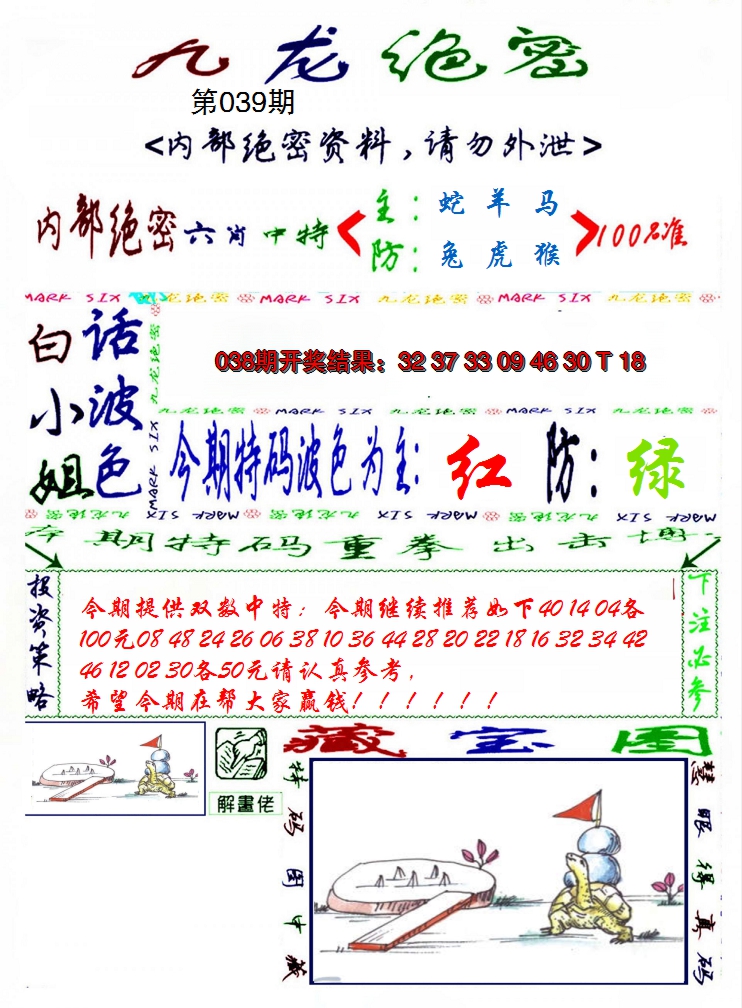 九龙绝密
第039期
<内部绝密资料,请勿外泄>
内部绝密六肖中特
主:蛇 羊 马
防:兔 虎 猴
100%准
MARK SIX 九龙绝密 MARK SIX 九龙绝密 MARK SIX 九龙绝密
白小姐
话波色
九龙绝密
MARK SIX
038期开奖结果:32 37 33 09 46 30 T 18
九龙绝密 MARK SIX 九龙绝密 MARK SIX 九龙绝密
今期特码波色为主:红 防:绿
MARK SIX 九龙绝密 MARK SIX 九龙绝密 MARK SIX 九龙绝密
今期特码重拳出击博
投资策略
今期提供双数中特:今期继续推荐如下40 14 04各
100元08 48 24 26 06 38 10 36 44 28 20 22 18 16 32 34 42
46 12 02 30各50元请认真参考,
希望今期在帮大家赢钱!!!!!!
下注必参
解畫佬
藏宝图
特码图中藏
慧眼得真码